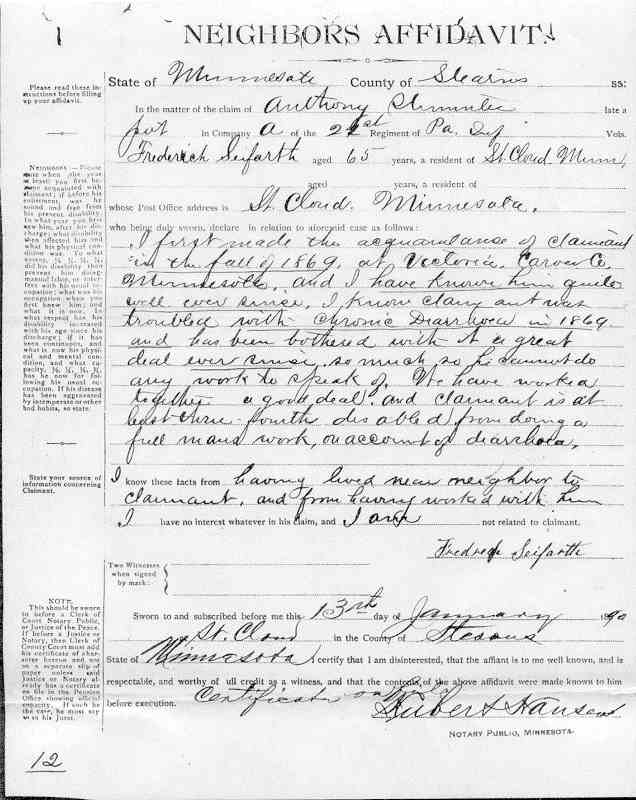 NEIGHBORS AFFIDAVIT.
State of Minnesota County of Stearns ss:
Please read these instructions before filling up your affidavit.
In the matter of the claim of Anthony late a
pvt in Company A of the 21st Regiment of Pa. Vols.
Frederich Seifarth aged 65 years, a resident of St. Cloud Minn,
aged years, a resident of
whose Post Office address is St. Cloud. Minnesota.
who being duly sworn, declare in relation to aforesaid case as follows:
I first made the acquaintanse of claimant
in the fall of 1869, at Victoria, Carver Co.
Minnesota, and I have known him quite
well ever since, I know claimant was
troubled with Chronic Diarrhoea in 1869
and has been bothered with it a great
deal ever since, so much so he cannot do
any work to speak of. We have worked
together a good deal. and claimant is at
least three fourths disabled from doing a
full mans work, on account of diarrhoea.
NEIGHBORS:—Please
state when (the year
at least) you first be-
came acquainted with
claimant; if before his
enlistment, was he
sound and free from
his present disability.
In what year you first
saw him, after his dis-
charge; what disability
then affected him and
what his physical con-
dition was. To what
extent, ¼, ½, ¾, did his disability then
prevent him doing
manual labor, or inter-
fere with his usual oc-
cupation; what was his
occupation when you
first knew him; and
what it is now. In
what respect has his
disability increased
with his age since his
discharge; if it has
been continuous, and
what is now his physi-
cal and mental con-
dition, and what ca-
pacity, ¼, ½, ¾,
has he now for fol-
lowing his usual oc-
cupation. If his disease
has been aggravated
by intemperate or other
bad habits, so state.
State your source of
information concerning
Claimant.
I know these facts from having lived near neighbor to
claimant, and from having worked with him
I have no interest whatever in his claim, and I am not related to claimant.
Fredrech Seifarth
Two Witnesses
when signed
by mark:
NOTE.
This should be sworn
to before a Clerk of
Court Notary Public,
or Justice of the Peace.
If before a Justice or
Notary, then Clerk of
County Court must add
his certificate of char-
acter hereon and not
on a separate slip of
paper unless said
Justice or Notary al-
ready has a certificate
on file in the Pension
Office showing official
capacity. If such be
the case, he must say
so in his Jurat.
Sworn to and subscribed before me this 13th day of January 1890
St. Cloud in the County of Stearns
State of Minnesota I certify that I am disinterested, that the affiant is to me well known, and is
respectable, and worthy of full credit as a witness, and that the contents of the above affidavit were made known to him
before execution. Certificate on file
Hubert Hansen
NOTARY PUBLIC, MINNESOTA.
12